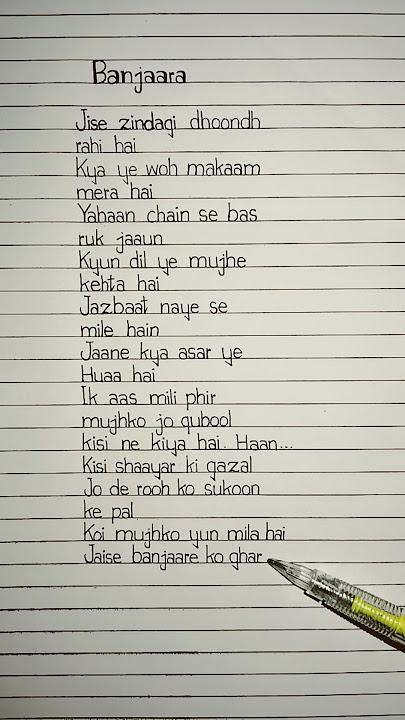 Banjaara
Jise zindagi dhoondh
rahi hai
Kya ye woh makaam
mera hai
Yahaan chain se bas
ruk jaaun
Kyun dil ye mujhe
kehta hai
Jazbaat naye se
mile hain
Jaane kya asar ye
Huaa hai
Ik aas mili phir
mujhko jo qubool
kisi ne kiya hai. Haan...
Kisi shaayar ki gazal
Jo de rooh ko sukoon
ke pal
Koi mujhko yun mila hai
Jaise banjaare ko ghar